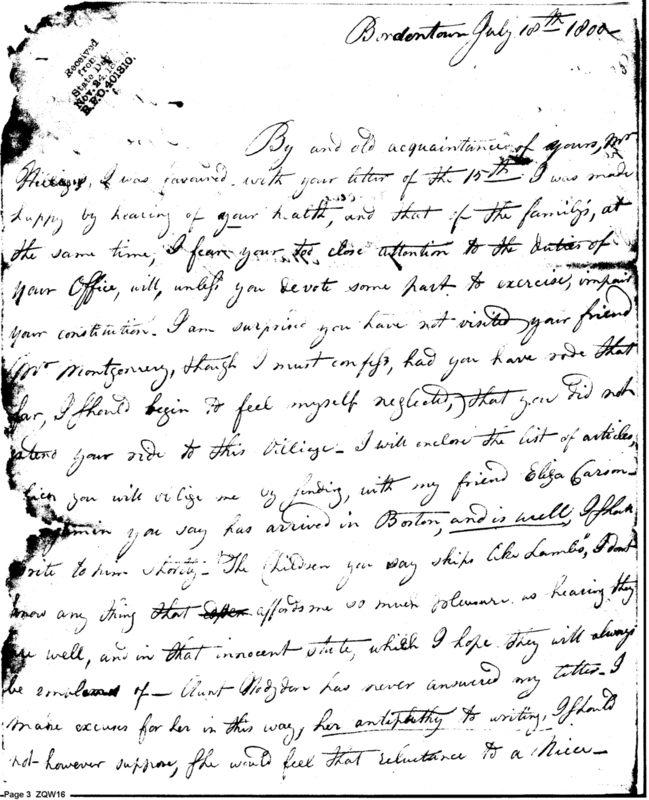 Bordentown July 18th 1800
Received
from
State Dept
Nov. 24, 
R.F.O. 401810.
By and old acquaintance of yours, Mr
I was favoured with your letter of the 15th I was made
happy by hearing of your health, and that of the family's, at
the same time, I fear your too close attention to the duties of
your Office, will, unless you devote some part to exercise, impair
your constitution. I am surprised you have not visited your friend
(Mr Montgomery, though I must confess, had you have rode that
far, I should begin to feel myself neglected,) that you did not
extend your ride to this Village - I will enclose the list of articles,
which you will oblige me by sending, with my friend Eliza Carson -
you say has arrived in Boston, and is well, I shall
write to him shortly - The Children you say skips like Lambs", I dont
know any thing that affords me so much pleasure as hearing they
are well, and in that innocent state, which I hope they will always
be of - Aunt Hodgdon has never answered my letter - I
make excuses for her in this way, her antipathy to writing, I should
not however suppose, she would feel that reluctance to a Niece -
Page 3 ZQW16